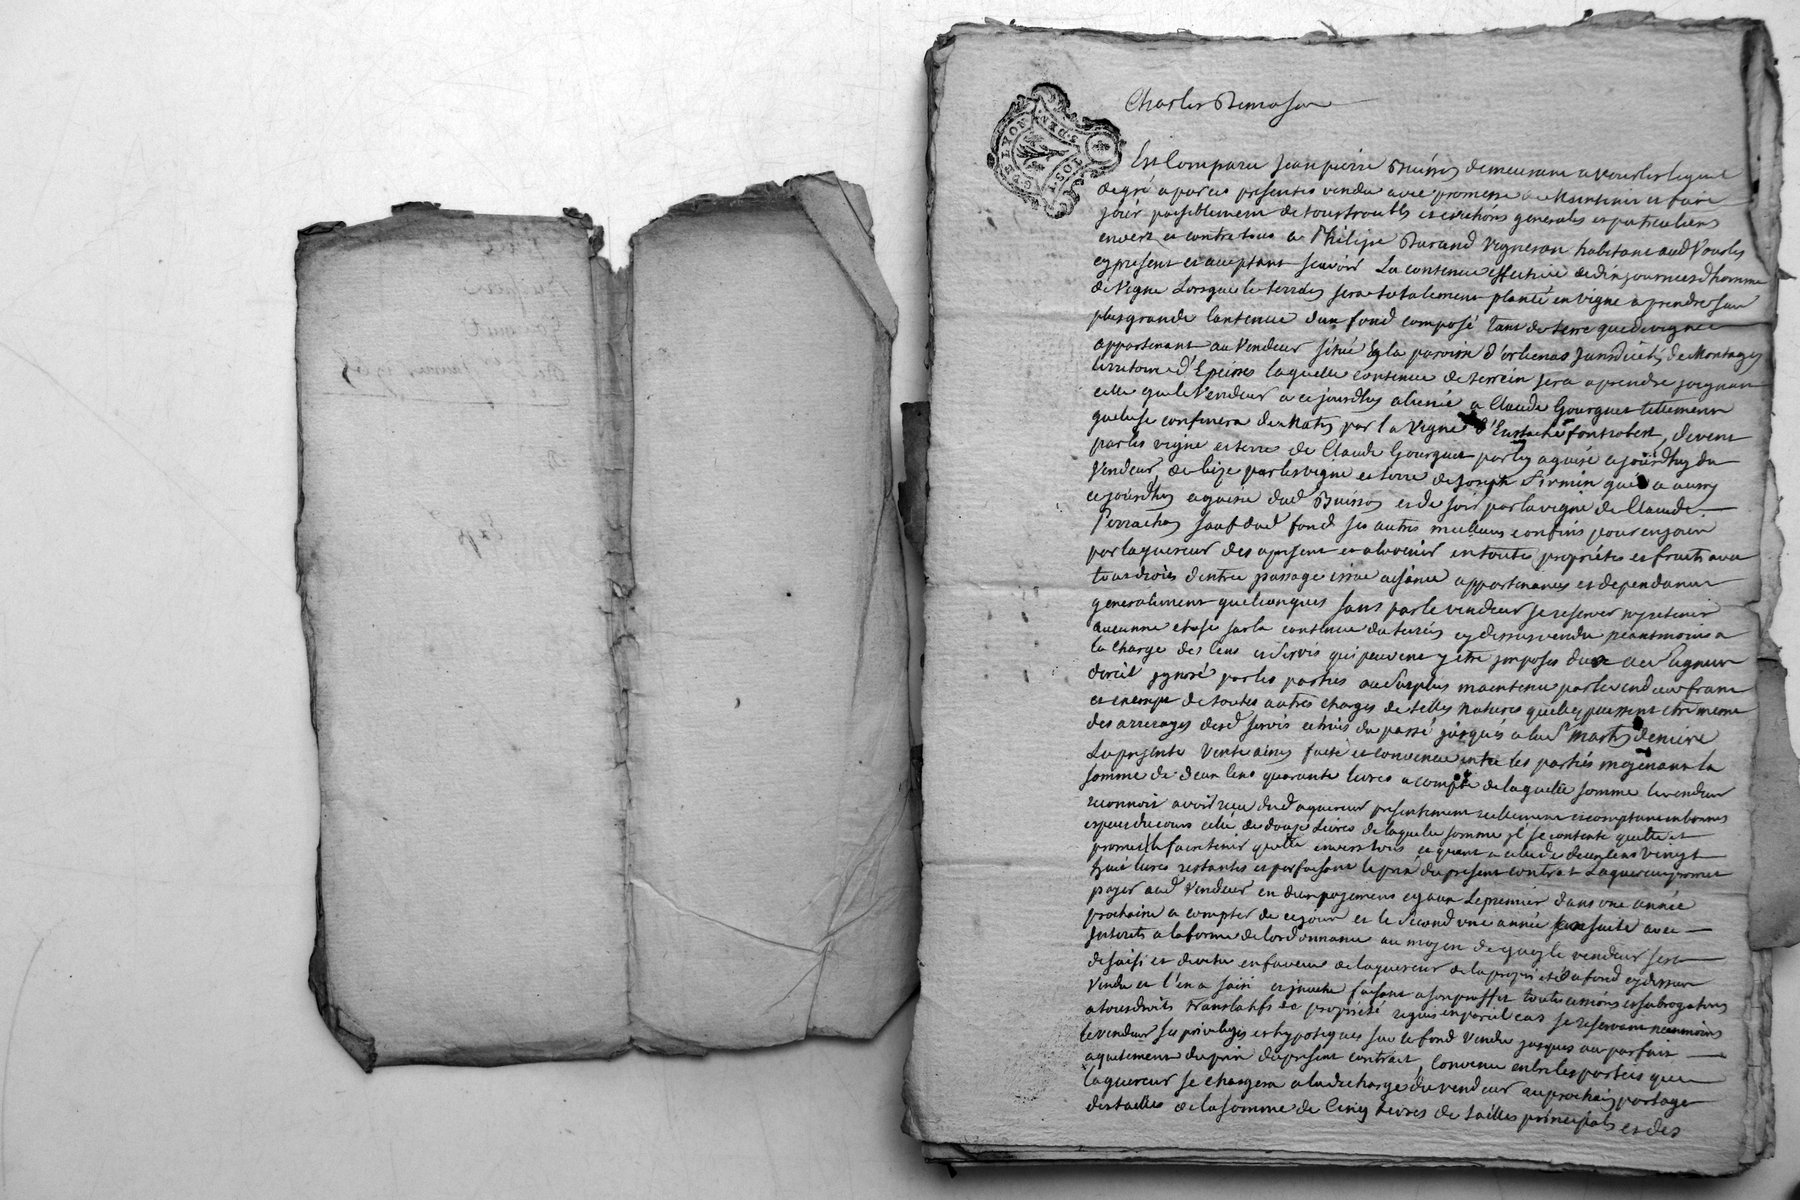 G. DE LYON
2. S. DEN.
Charles Demasson
Est Comparu Jean pierre Buisson demeurant a Vourles lequel
de gré a par ces presentes vendu avec promesse de Maintenir et faire
joüir paisiblement de tous troubles et evictions generales et particulieres
envers et contre tous a Philipe Durand Vigneron habitant aud Vourles
cy present et acceptant scavoir La contenue effective de dix journées d'homme
de Vigne Lorsque le terrein sera totalement planté en vigne a prendre sur
plus grande Contenue d'un fond composé tant de terre que de vigne
appartenant au Vendeur situé En la paroisse d'orlienas Jurisdiction de Montagny
territoire d'Epeisses laquelle contenue de terrein sera a prendre joignant
celle que le Vendeur a cejourdhuy alienée a Claude Gourguet tellement
quelle se confinera de Matin par la Vigne d'Eustache fontrobert, de vent
par les vigne et terre de Claude Gourguet par luy aquise cejourdhuy du
Vendeur, de bize par les vigne et terre de Joseph Firmin qu'il a aussy
cejourdhuy aquise dud Buisson et de soir par la vigne de Claude
Perrachon sauf dud fond ses autres meilleurs confins pour en joüir
par laquereur des apresent et alavenir en toute proprieté et fruits avec
tous droits d'entrée passage issue aisance appartenances et dependances
generalement quelconques sans par le vendeur se reserver ny retenir
aucunne chose sur la contenue du terrein cy dessus vendu neantmoins a
la charge des Cens et Servis qui peuvent y etre imposés dus au Seigneur
direct ignoré par les parties au Surplus maintenu par le vendeur franc
et exempt de toutes autres charges de telles natures quelles puissent etre meme
des arrerages desd servis et truis du passé jusques a la St Martin derniere
La presente Vente ainsy faite et convenue entre les parties moyenant la
somme de deux Cens quarante livres a compte de laquelle somme le vendeur
reconnoit avoir receu dud aquereur presentement reellement et comptant en bonnes
especes du cours celle de douze Livres de laquelle somme il se contente quitte et
promet la faire tenir quitte envers tous et quant a celle de deux Cens vingt
huit livres restantes et parfaisant le prix du present contrat Laquereur promet
payer aud Vendeur en deux payemens egaux Le premier dans une année
prochaine a compter de cejour et le Second une année ensuite avec
Interets a la forme de lordonnance au moyen de quoy le vendeur sera
desaisi et devetu en faveur de laquereur de la proprieté du fond cy dessus
Vendu et l'en a saisi et jnvetu faisant a son proffit toutes cessions et subrogations
a tous droits translatifs de proprieté requis en pareil cas se reservant neanmoins
le vendeur ses privileges et hypoteques sur le fond Vendu jusques au parfait
aquitement du prix du present contrat, Convenu entre les parties que
laquereur se chargera a la decharge du vendeur au prochain partage
des tailles de la somme de Cinq Livres de tailles principals et des